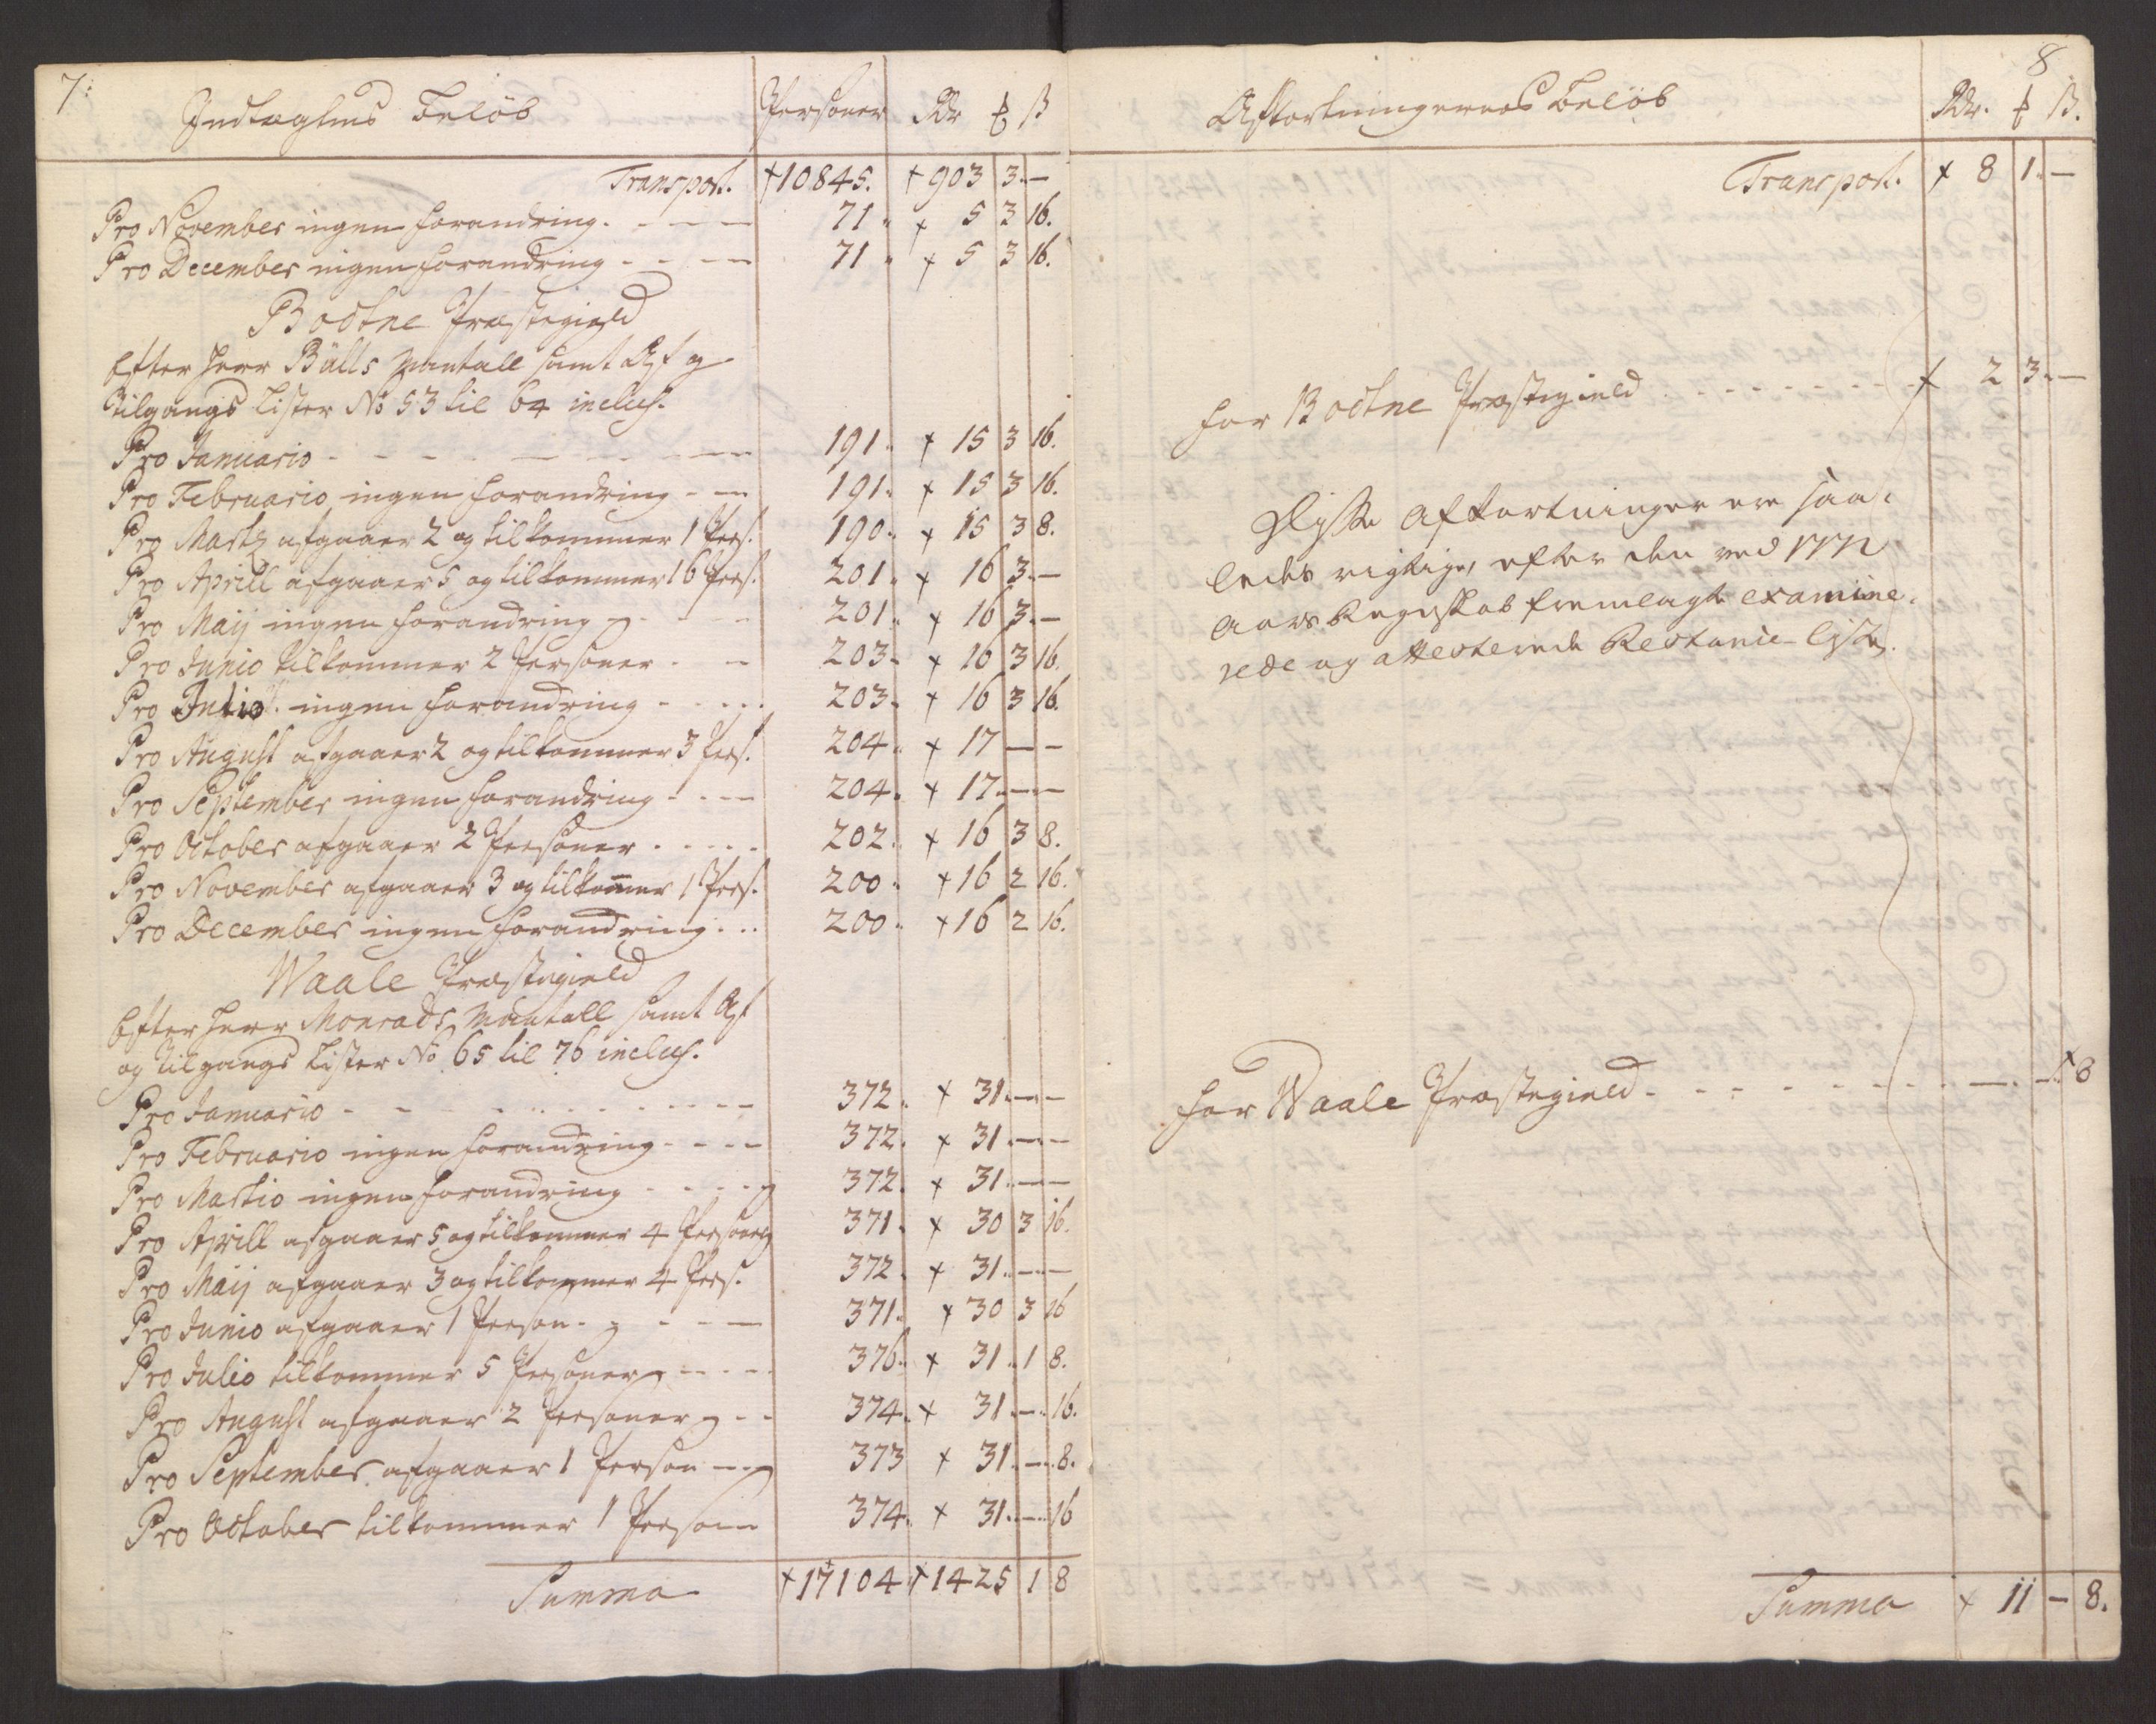 7:
Indtægtens Beløb Personer Rdr ₰ ß
Transport. +10845. +903 3 -
Pro November ingen forandring. - - - 71. + 5 3 16.
Pro December ingen forandring - - - 71. + 5 3 16.
Bodtne Præstegield
Efter Herr Bülls Mantall samt Af og
Tilgangs Lister No 53 til 64 inclus.
Pro Januario - - - 191. + 15 3 16.
Pro Februario ingen forandring - - 191. + 15 3 16.
Pro Marty afgaaer 2 og tilkommer 1 Pers. 190. + 15 3 8.
Pro Aprill afgaaer 5 og tilkommer 16 Pers. 201. + 16 3 -
Pro Maij ingen forandring - - - 201. + 16 3 -
Pro Junio tilkommer 2 Personer - - 203. + 16 3 16.
Pro Julio. ingen forandring - - - 203. + 16 3 16.
Pro August afgaaer 2 og tilkommer 3 Pers. 204. + 17 - -
Pro September ingen forandring - - - 204. + 17 - -
Pro October afgaaer 2 Personer - - - 202. + 16 3 8.
Pro November afgaaer 3 og tilkom̄er 1 Pers. 200. + 16 2 16.
Pro December ingen forandring - - 200. + 16 2 16.
Waale Præstegield
Efter Herr Monrads Mantall samt Af
og Tilgangs Lister No 65 til 76 inclus.
Pro Januario - - - 372. + 31 - -
Pro Februario ingen forandring - - - 372. + 31 - -
Pro Martio ingen forandring - - - 372. + 31 - -
Pro Aprill afgaaer 5 og tilkommer 4 Personer 371. + 30 3 16.
Pro Maij afgaaer 3 og tilkommer 4 Pers. 372. + 31 - -
Pro Junio afgaaer 1 Person - - - 371. + 30 3 16
Pro Julio tilkommer 5 Personer - - - 376. + 31 1 8.
Pro August afgaaer 2 Personer - - 374. + 31 - 16.
Pro September afgaaer 1 Person - - 373 + 31 - 8.
Pro October tilkommer 1 Person 374. + 31 - 16
Summa +17104 +1425 1 8
8
Afkortningernes Beløb Rdr. ₰ ß.
Transport. + 8 1 -
for Bodtne Præstegield - - - + 2 3 -
Disse Afkortninger ere saa-
ledes rigtige, efter den ved
Aars Regnskab fremlagte examine-
rede og attesterede Restance-Liste.
for Waale Præstegield - - - - - + 8
Summa + 11 - 8.